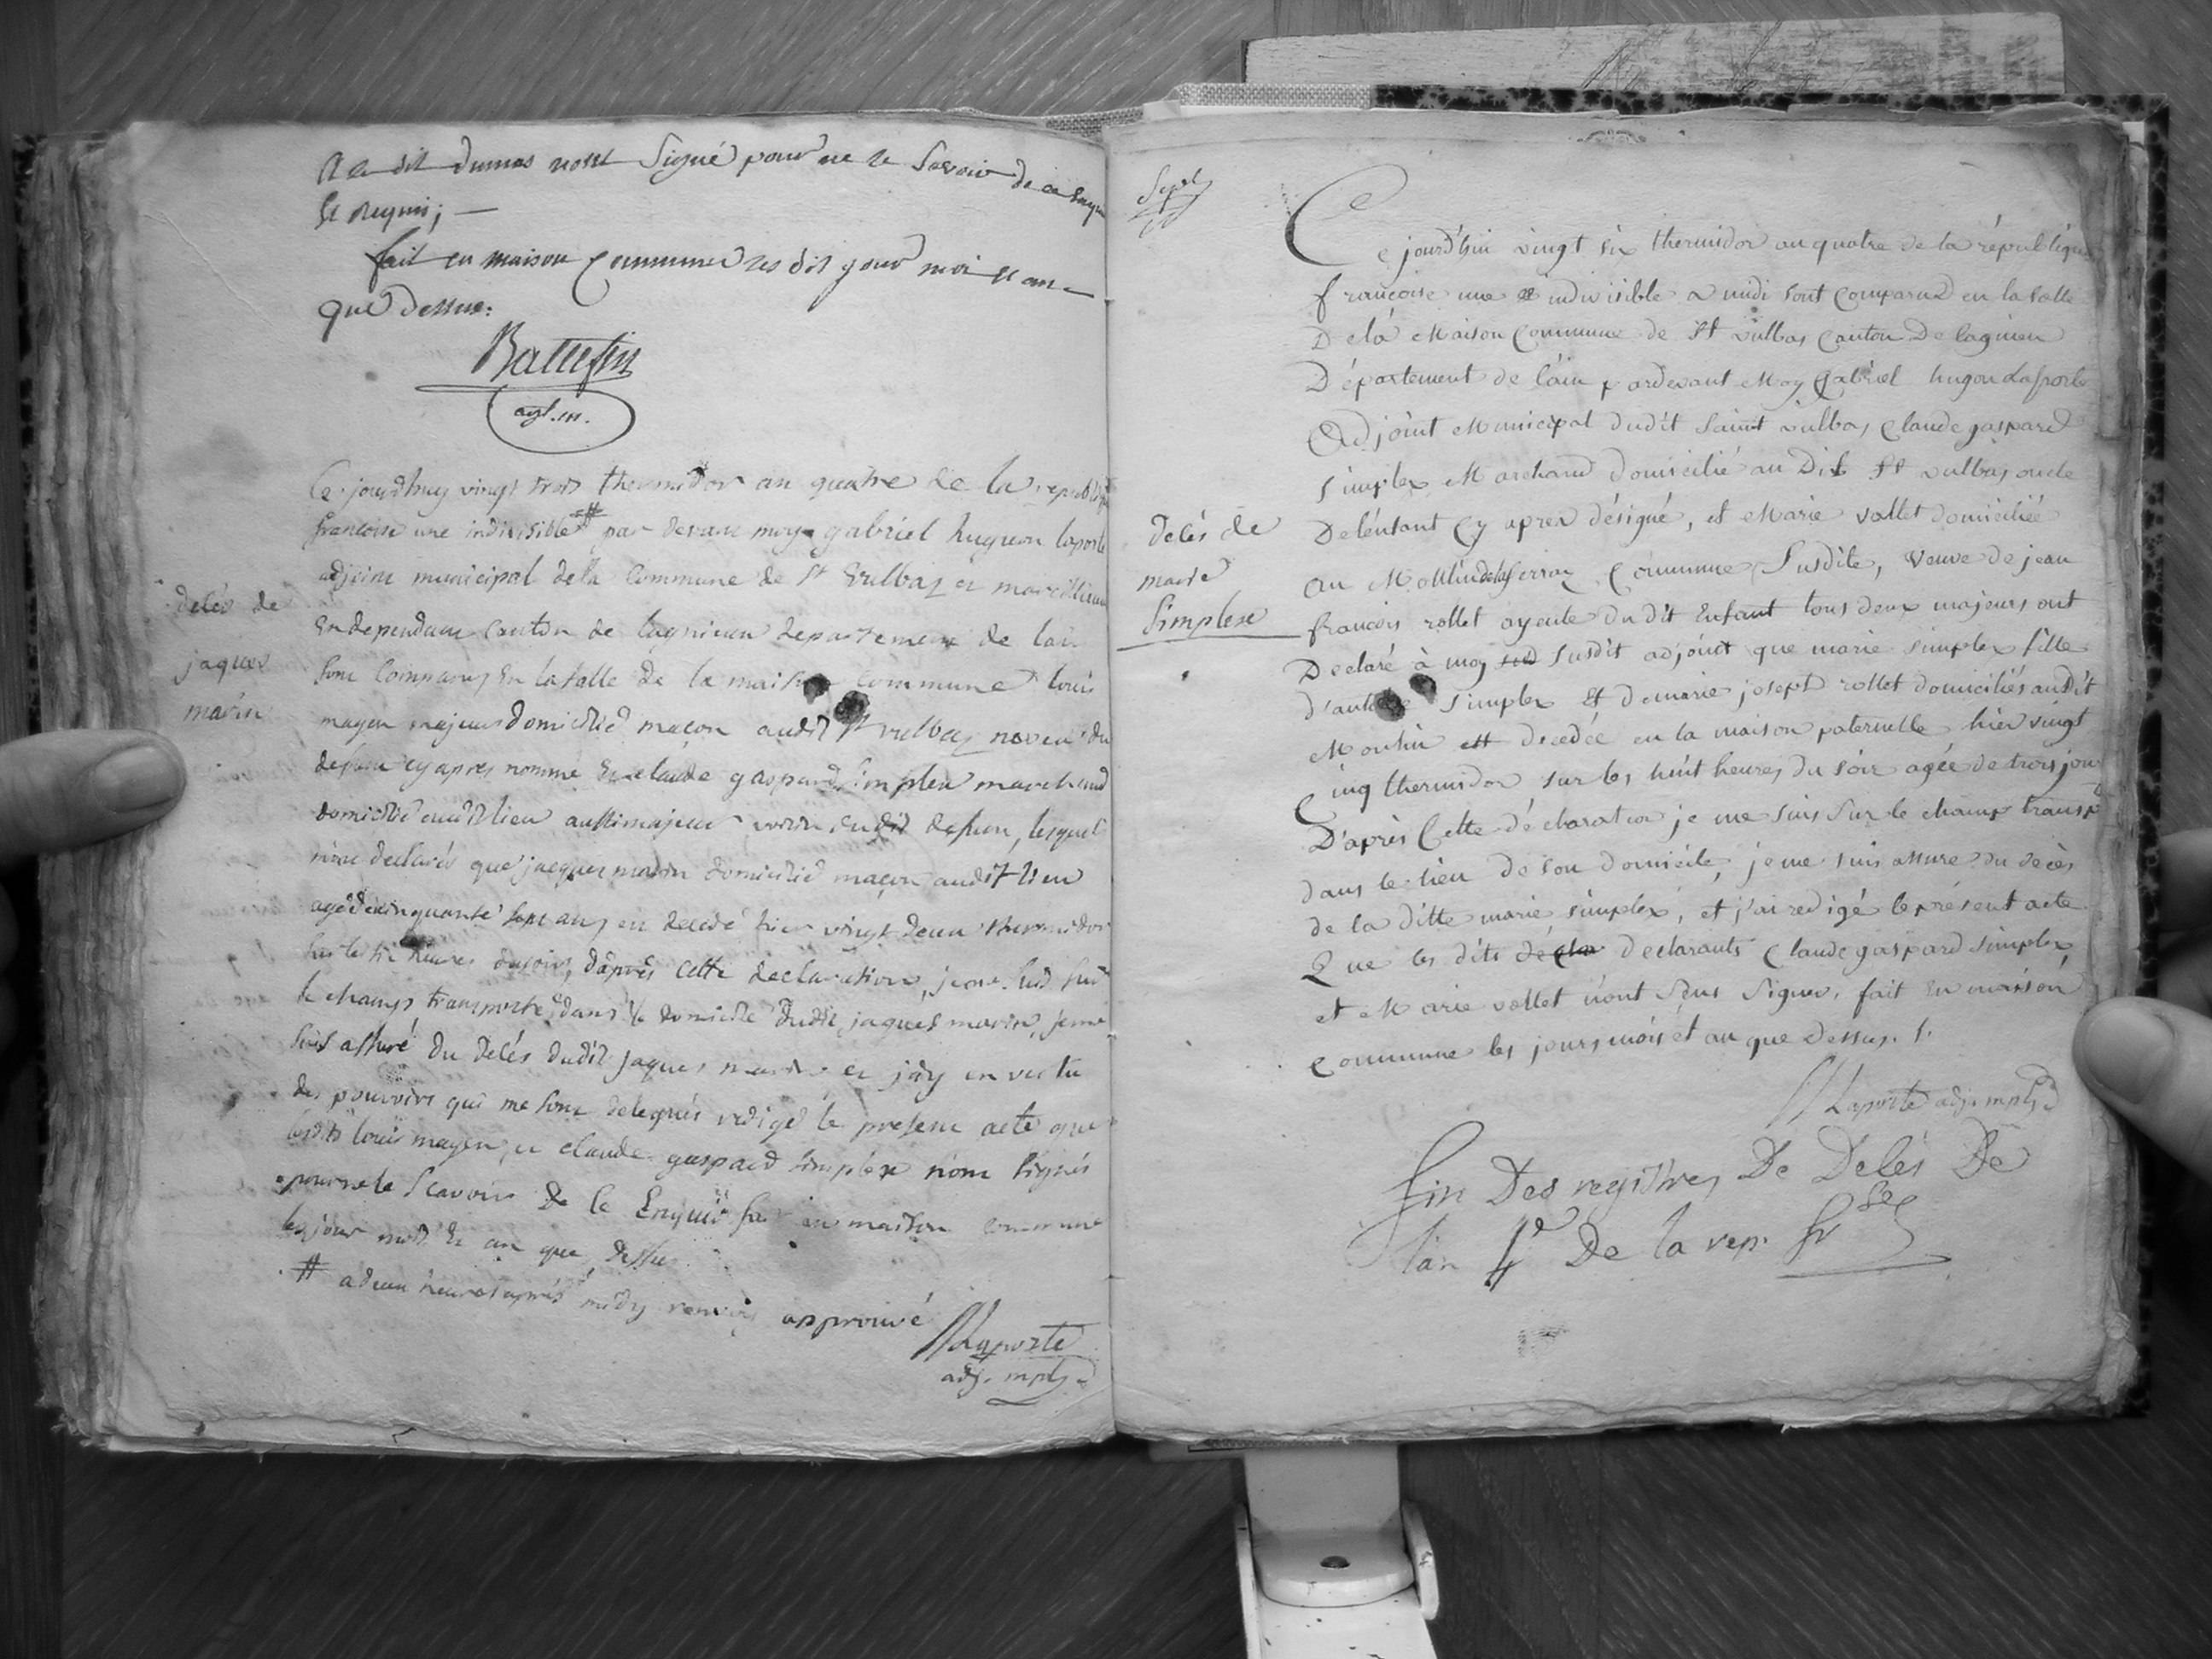 dit dumas nont Signé pour ne le Savoir de ce Enquis
Et Requis ; —
fait en maison Commune les dit jour moi et an
que Dessus :
Battefin
agt. m.
delés de
jaques
marin
Ce jourdhuy vingt trois thermidor an quatre de la republique
francoise une indivisible # par devant moy gabriel hugon laporte
adjoint municipal de la Commune de St Vulbas et marcillieux
En dependant Canton de lagnieu departement de lain
Sont Comparus En la salle de la maison Commune louis
mayen majeur domicilié maçon audit St vulbas neveu du
defunt cy apres nommé Et claude gaspard Simplex marchand
domicilié audit lieu aussi majeur voisin dudit defunt, lesquels
mont declarés que jacques marin domicilié maçon audit lieu
agé de cinquante sept ans est decedé hier vingt deux thermidor
sur les six heures du soir, d'après cette declaration, je me suis sur
le champ transporté dans le domicile dudit jaques marin, je me
suis assuré du delés dudit jaques marin et j'ay en vertu
des pouvoirs qui me sont delegués redigé le present acte que
lesdits louis mayen, et claude gaspard simplex n'ont signés
pour ne le scavoir de ce Enquis fait en maison commune
les jour mois et an que dessus
# a deux heures après midy renvoy approuvé
Laporte
adj. mpal
Sept
Ce jourd'hui vingt six thermidor an quatre de la république
françoise une et indivisible a midi sont comparus en la salle
De la Maison Commune de St vulbas Canton De lagnieu
Département de l'ain pardevant Moy Gabriel hugon Laporte
Adjoint Municipal dudit Saint vulbas Claude gaspard
Simplex Marchand domicilié au Dit St vulbas oncle
De l'enfant Cy apres désigné, et Marie vollet domiciliée
au Moulin de la Serraz Commune Susdite, Veuve de jean
françois rollet ayeule du dit Enfant tous deux majeurs ont
Declaré à moy susdit adjoint que marie simplex fille
d'antoine Simplex Et de marie joseph rollet domiciliés audit
Moulin est decedée en la maison paternelle hier vingt
Cinq thermidor sur les huit heures du soir agée de trois jours
D'après Cette déclaration je me suis sur le champ transp
dans le lieu de son domicile, je me suis assuré du decès
de la ditte marie simplex, et j'ai redigé le présent acte
Que les dits declarants Claude gaspard simplex
et Marie vollet n'ont seus signer, fait En maison
Commune les jours mois et an que Dessus.
delés de
marie
Simplex
Laporte adj. mpal
fin Des registres De Delés De
l'an 4e De la rep. frse